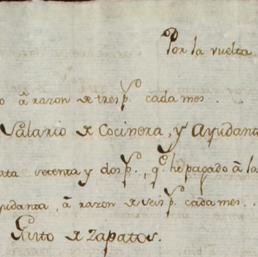 Por la vuelta
o â razon de tres p.s cada mes.
Salario de Cocinera, y Ayudant
ata setenta y dos p.s, q.e he pagado â la
yudanta, â razon de seis p.s cada mes..
Gasto de Zapatos.